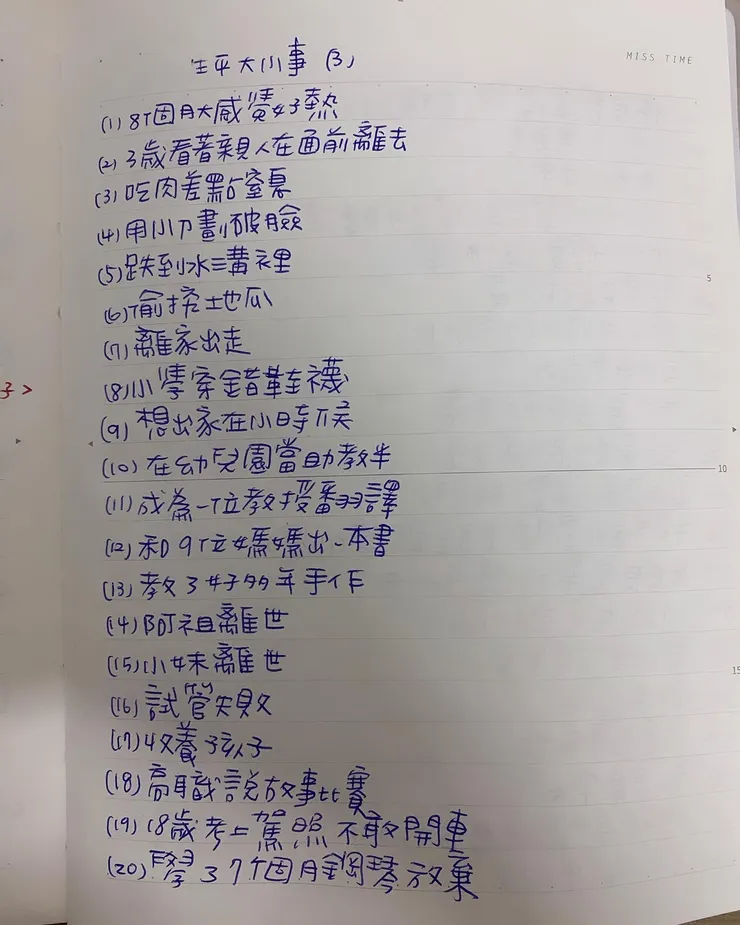 生平大小事(3)
MISS TIME
(1) 8個月大感覺好熱
(2) 3歲看著親人在面前離去
(3) 吃肉差點窒息
(4) 用小刀劃破臉
(5) 跌到水溝裡
5
(6) 偷挖地瓜
(7) 離家出走
子>
(8) 小學穿錯鞋襪
(9) 想出家在小時候
(10) 在幼兒園當助教半
10
(11) 成為一位教授翻譯
(12) 和9位媽媽出一本書
(13) 教了好多年手作
(14) 阿祖離世
(15) 小妹離世
15
(16) 試管失敗
(17) 收養孩子
(18) 高職說故事比賽
(19) 18歲考上駕照不敢開車
(20) 學了7個月鋼琴放棄